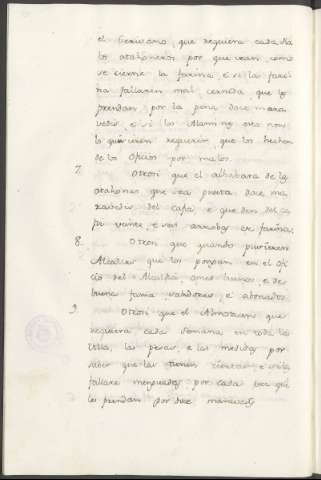 el Escrivano, que requiera cada dia
los atahoneros por que vean como
se cierne la farina, e si la fari-
na fallaren mal cernida que los
prendan por la pena doce mara-
vedis, e si los Alamines esto non
lo quisieren requerir, que los hechen
de los oficios por malos.
7. Otrosi que el albabara de las
atahonas que sea puesta doce ma-
ravedis del cafiz e que den del
veinte, e seis arrobas en farina.
8. Otrosi que quando pusieren
Alcaldes que los pongan en el ofi-
cio del Alcaldia omes buenos, e de
buena fama, sabidores, e abonados.
9. Otrosi que el Almotacen que
requiera cada semana en toda la
Villa, las pesas, e las medidas por
saber que las tienen ciertas e si las
fallare menguadas por cada vez que
los prendan por doce maravedis